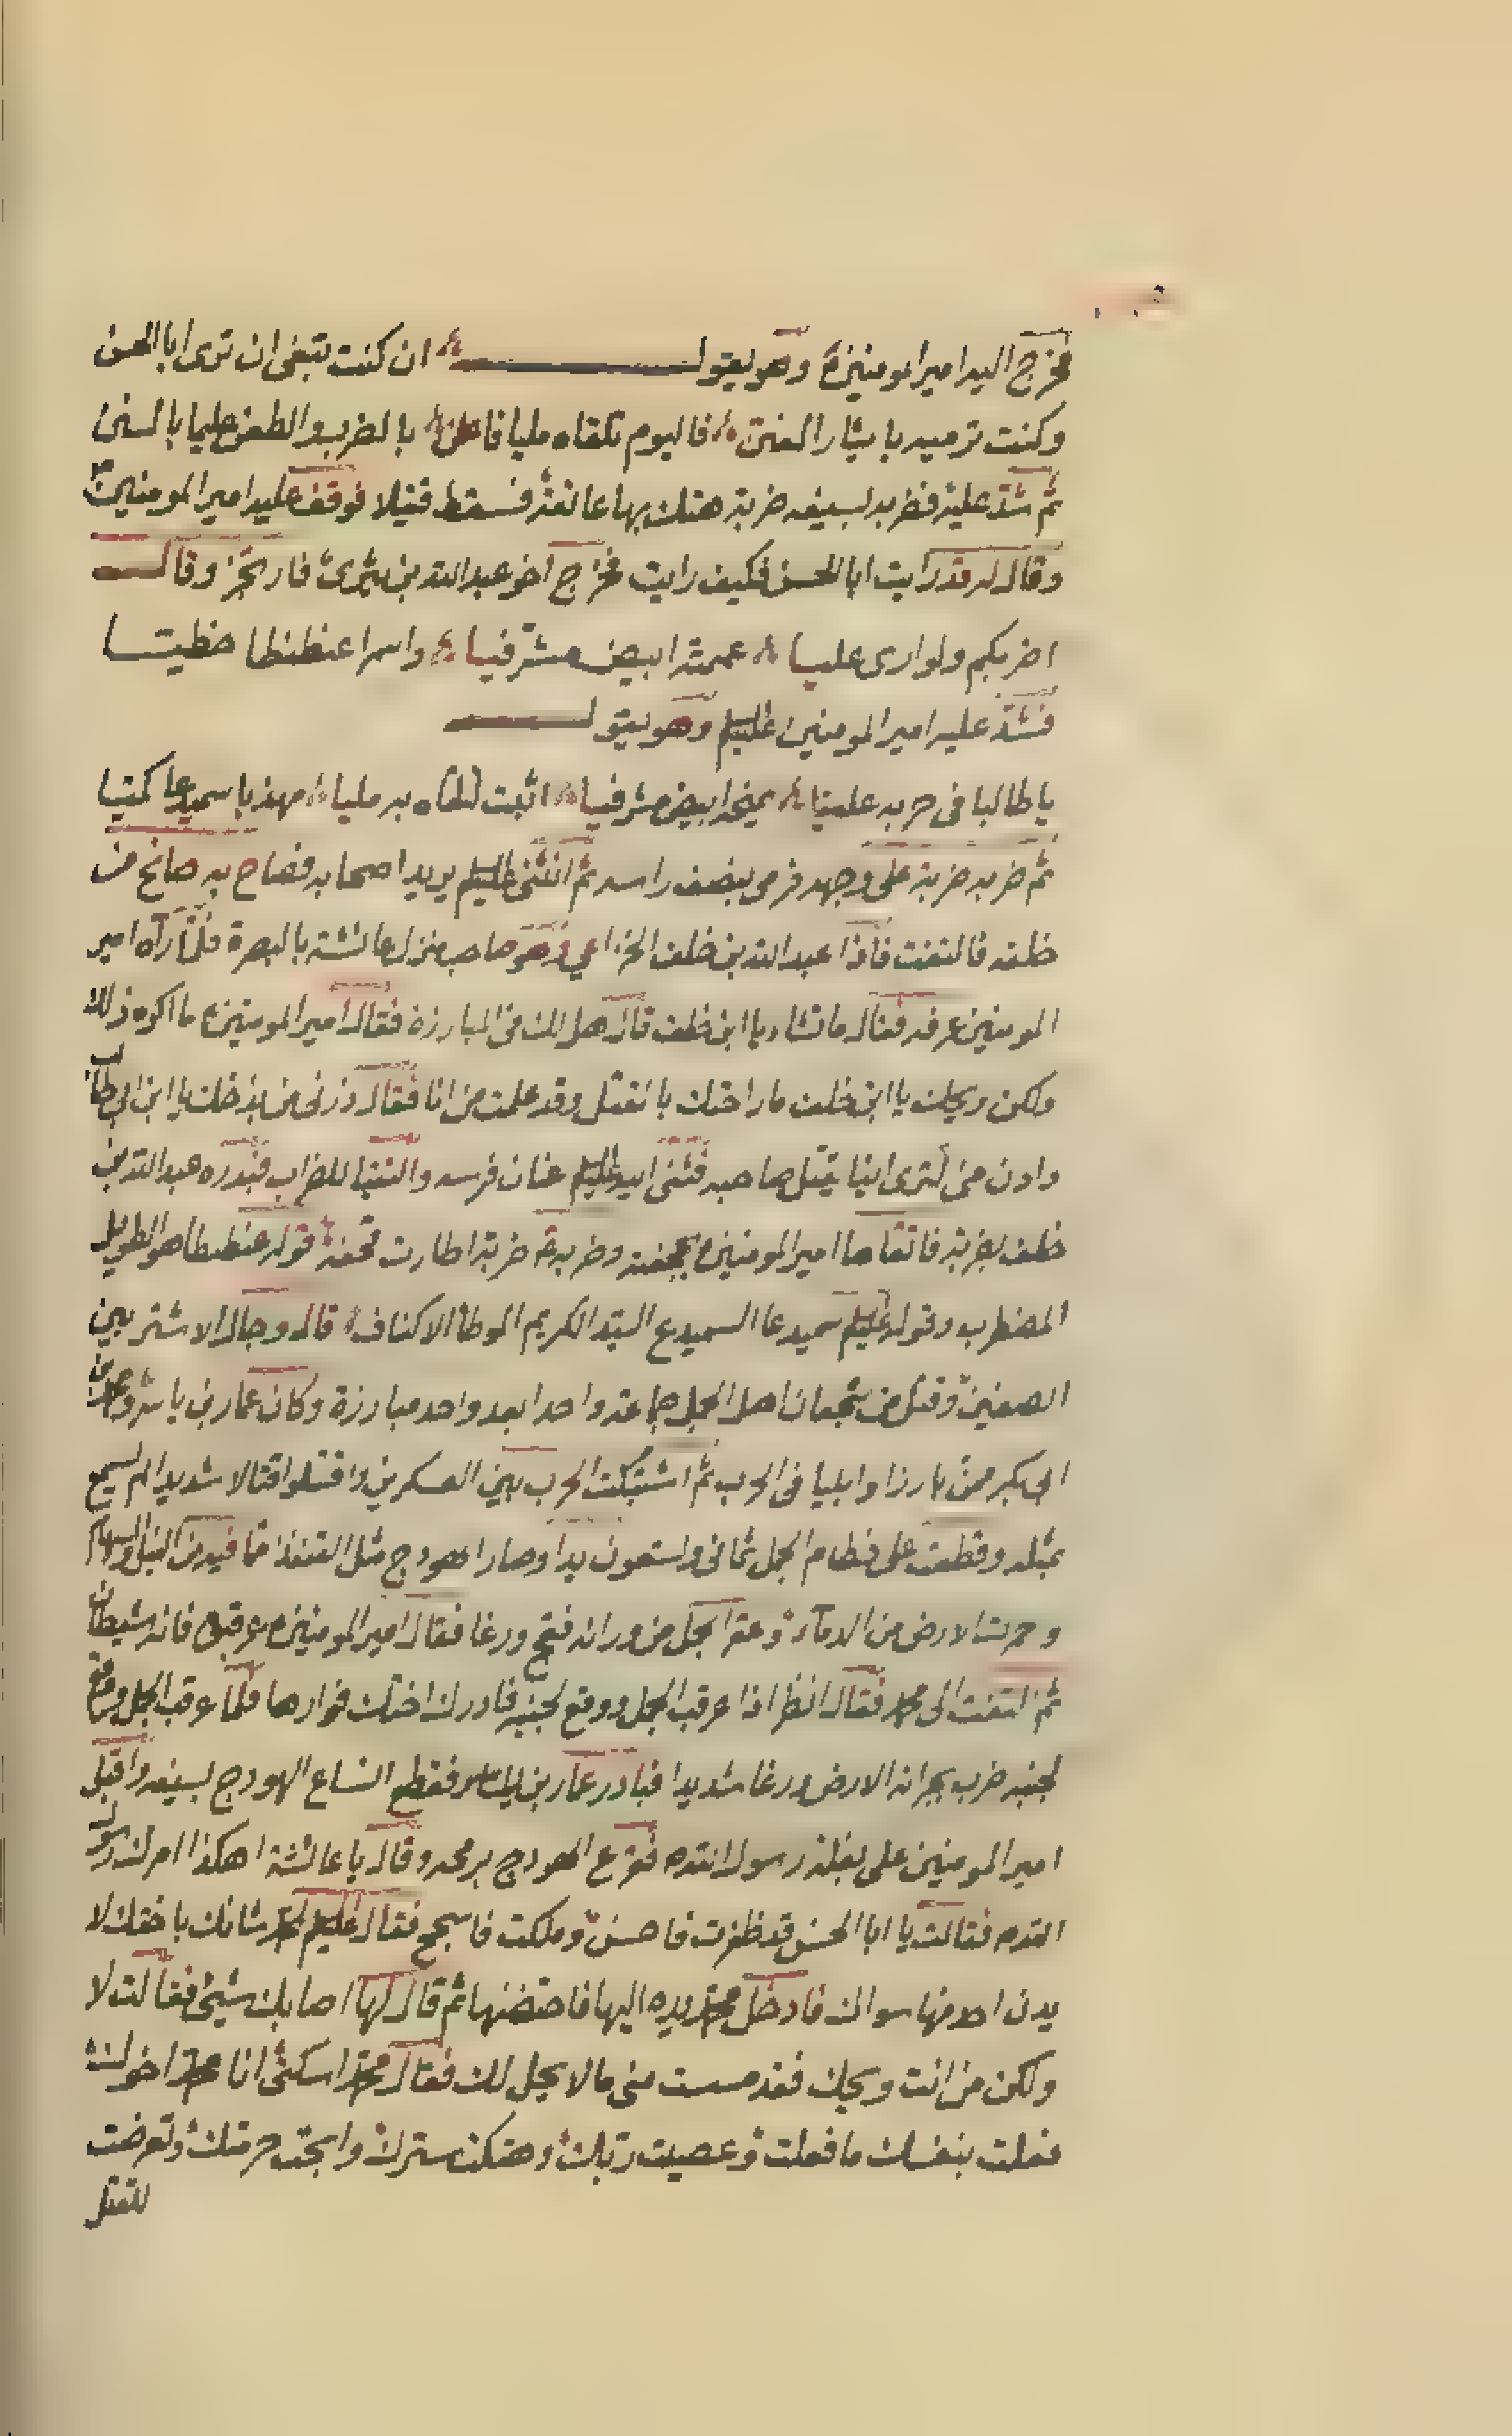 فخرج اليه امير المومنين ع وهو يقول ان كنت تبتغى ان ترى ابا الحسن
وكنت ترميه بايثار الفتن فاليوم تلقاه مليا فاعلن بالضرب والطعن عليما بالسنن
ثم شد عليه فضربه بسيفه ضربة هتك بها عاتقه فسقط قتيلا فوقف عليه امير المومنين
وقال له قد رايت ابا الحسن فكيف رايت فخرج اخو عبد الله بن يثرى فارتجز وقال
اضربكم ولو ارى عليا عممته ابيض مشرفيا واسمرا عنطنطا خطيا
فشد عليه امير المومنين عليه السلم وهو يقول
يا طالبا فى حربه عليا يمنحه ابيض مشرفيا اثبت لتلقاه به مليا مهذبا سميدعا كميا
ثم ضربه ضربة على وجهه فرمى بنصف راسه ثم انثنى عليلم يريد اصحابه فصاح به صائح من
خلفه فالتفت فاذا عبد الله بن خلف الخزاعي وهو صاحب منزل عائشة بالبصرة فلما رآه امير
المومنين عرفه فقال ما تشاء يا ابن خلف قال هل لك فى المبارزة فقال امير المومنين ع ما اكره ذلك
ولكن ويحك يا ابن خلف ما راحتك بالقتل وقد علمت من انا فقال ذرنى من بذخك يا ابن ابى طالب
وادن منى لترى اينا يقتل صاحبه فثنى اليه عليلم عنان فرسه والتقيا للضراب فبدره عبد الله بن
خلف بضربة فاتقاها امير المومنين ع بجحفته وضربه ع ضربة اطارت قحفه قوله عنطنطا هو الطويل
المضطرب وقوله عليلم سميدعا السميدع السيد الكريم الموطأ الاكناف قال وجال الاشتر بين
الصفين وقتل من شجعان اهل الجمل جماعة واحدا بعد واحد مبارزة وكان عمار بن ياسر ومحمد بن
ابى بكر ممن بارزا وابليا فى الحرب ثم اشتبكت الحرب بين العسكرين واقتتلوا قتالا شديدا لم يسمع
بمثله وقطعت على خطام الجمل ثمانى وتسعون يدا وصار الهودج مثل القنفذ مما فيه من النبل والسهام
وحمرت الارض من الدماء وعقر الجمل من ورائه فعج ورغا فقال امير المومنين ع عرقبوه فانه شيطان
ثم التفت الى محمد فقال انظر اذا عرقب الجمل ووقع لجنبه فادرك اختك فوارها فلما عرقب الجمل ووقع
لجنبه ضرب بجرانه الارض ورغا شديدا فبادر عمار بن ياسر فقطع انساع الهودج بسيفه واقبل
امير المومنين على بغلة رسول الله ص فقرع الهودج برمحه وقال يا عائشة اهكذا امرك رسول
الله ص فقالت يا ابا الحسن قد ظفرت فاحسن وملكت فاسجح فقال عليلم لمحمد شانك باختك لا
يدن احد منها سواك فادخل محمد يده اليها فاحتضنها ثم قال لها اصابك شيئ فقالت لا
ولكن من انت ويحك فقد مسست منى ما لا يحل لك فقال محمد اسكتى انا محمد اخوك
فعلت بنفسك ما فعلت وعصيت ربك وهتكت سترك وابحت حرمتك وتعرضت
للقتل